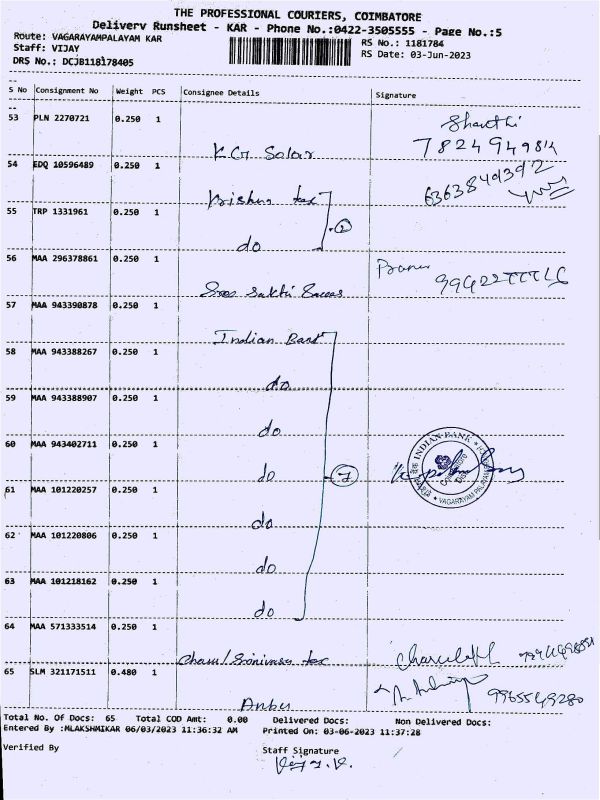 THE PROFESSIONAL COURIERS, COIMBATORE
Delivery Runsheet - KAR - Phone No.:0422-3505555 - Page No.:5
Route: VAGARAYAMPALAYAM KAR
RS No.: 1181784
Staff: VIJAY
RS Date: 03-Jun-2023
DRS No.: DCJB118178405
S No Consignment No Weight PCS Consignee Details Signature
53 PLN 2270721 0.250 1
Shanthi
7824949814
KG Solar
54 EDQ 10596489 0.250 1
6363849392
Krishna tex
55 TRP 1331961 0.250 1
2
do
56 MAA 296378861 0.250 1
Sree Sakthi
57 MAA 943390878 0.250 1
Indian Bank
58 MAA 943388267 0.250 1
do
59 MAA 943388907 0.250 1
do
60 MAA 943402711 0.250 1
INDIAN BANK
Coimbatore
Dist
VAGARAYAM PALAYAM
do
7
61 MAA 101220257 0.250 1
do
62 MAA 101220806 0.250 1
do
63 MAA 101218162 0.250 1
do
64 MAA 571333514 0.250 1
Charu/Srinivasa tex
65 SLM 321171511 0.480 1
9965549280
Anbu
Total No. Of Docs: 65 Total COD Amt: 0.00 Delivered Docs: Non Delivered Docs:
Entered By :MLAKSHMIKAR 06/03/2023 11:36:32 AM Printed On: 03-06-2023 11:37:28
Verified By Staff Signature